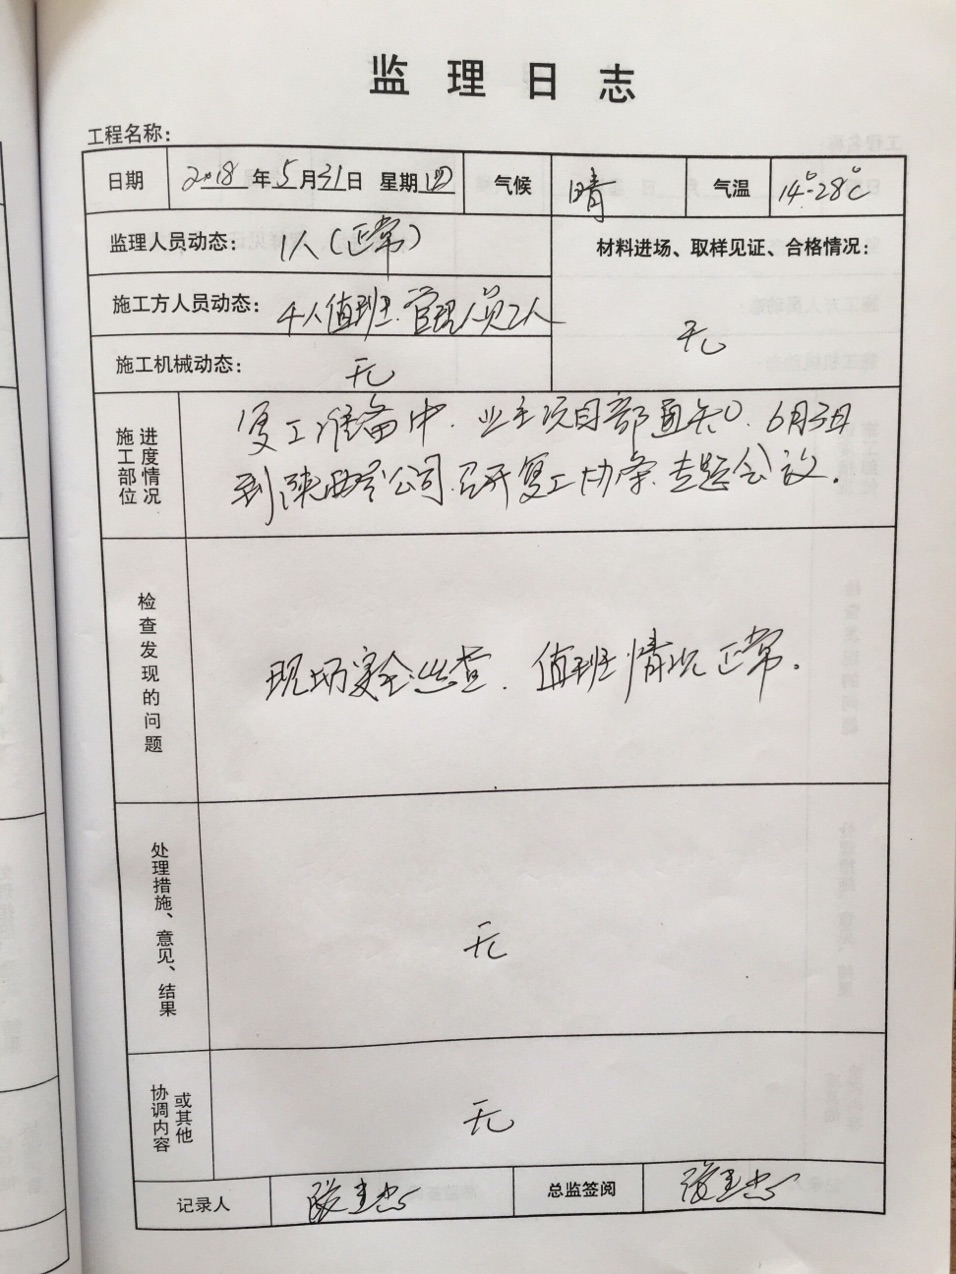 监理日志
工程名称：
日期 2018年5月31日 星期四 气候 晴 气温 14°-28℃
监理人员动态： 1人（正常）
材料进场、取样见证、合格情况：
施工方人员动态： 4人值班.管理人员2人
无
施工机械动态： 无
施工部位
进度情况
复工准备中.业主项目部通知.6月3日
到陕西省公司.召开复工协条.专题会议.
检查发现的问题
现场安全巡查.值班情况正常.
处理措施、意见、结果
无
协调内容
或其他
无
记录人 总监签阅